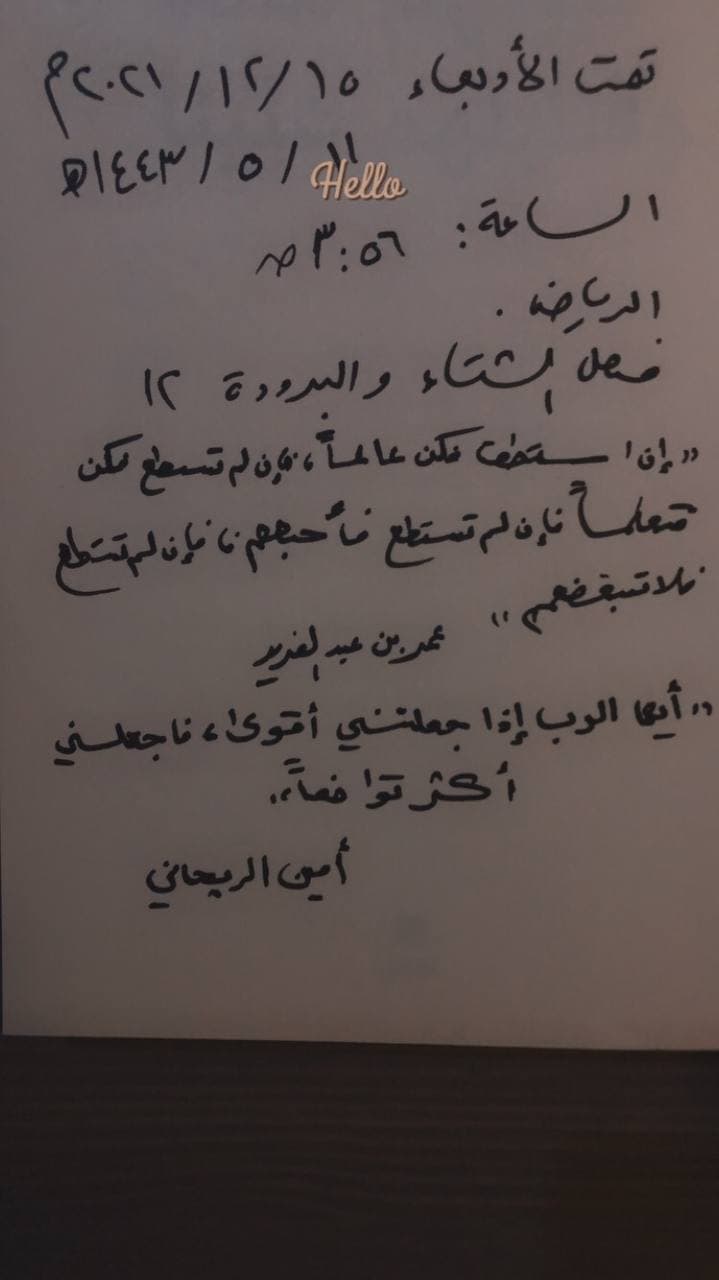 تمت الأربعاء ١٥/١٢/٢٠٢١م
١١/٥/١٤٤٣هـ
Hello
الساعة: ٣:٥٦ ص
الرياض.
فصل الشتاء والبرودة ١٢
"إن استطعت فكن عالماً، فإن لم تستطع فكن
متعلماً فإن لم تستطع فأحبهم، فإن لم تستطع
فلا تبغضهم"
عمر بن عبد العزيز
"أيها الرب إذا جعلتني أقوى، فاجعلني
أكثر تواضعاً".
أمين الريحاني